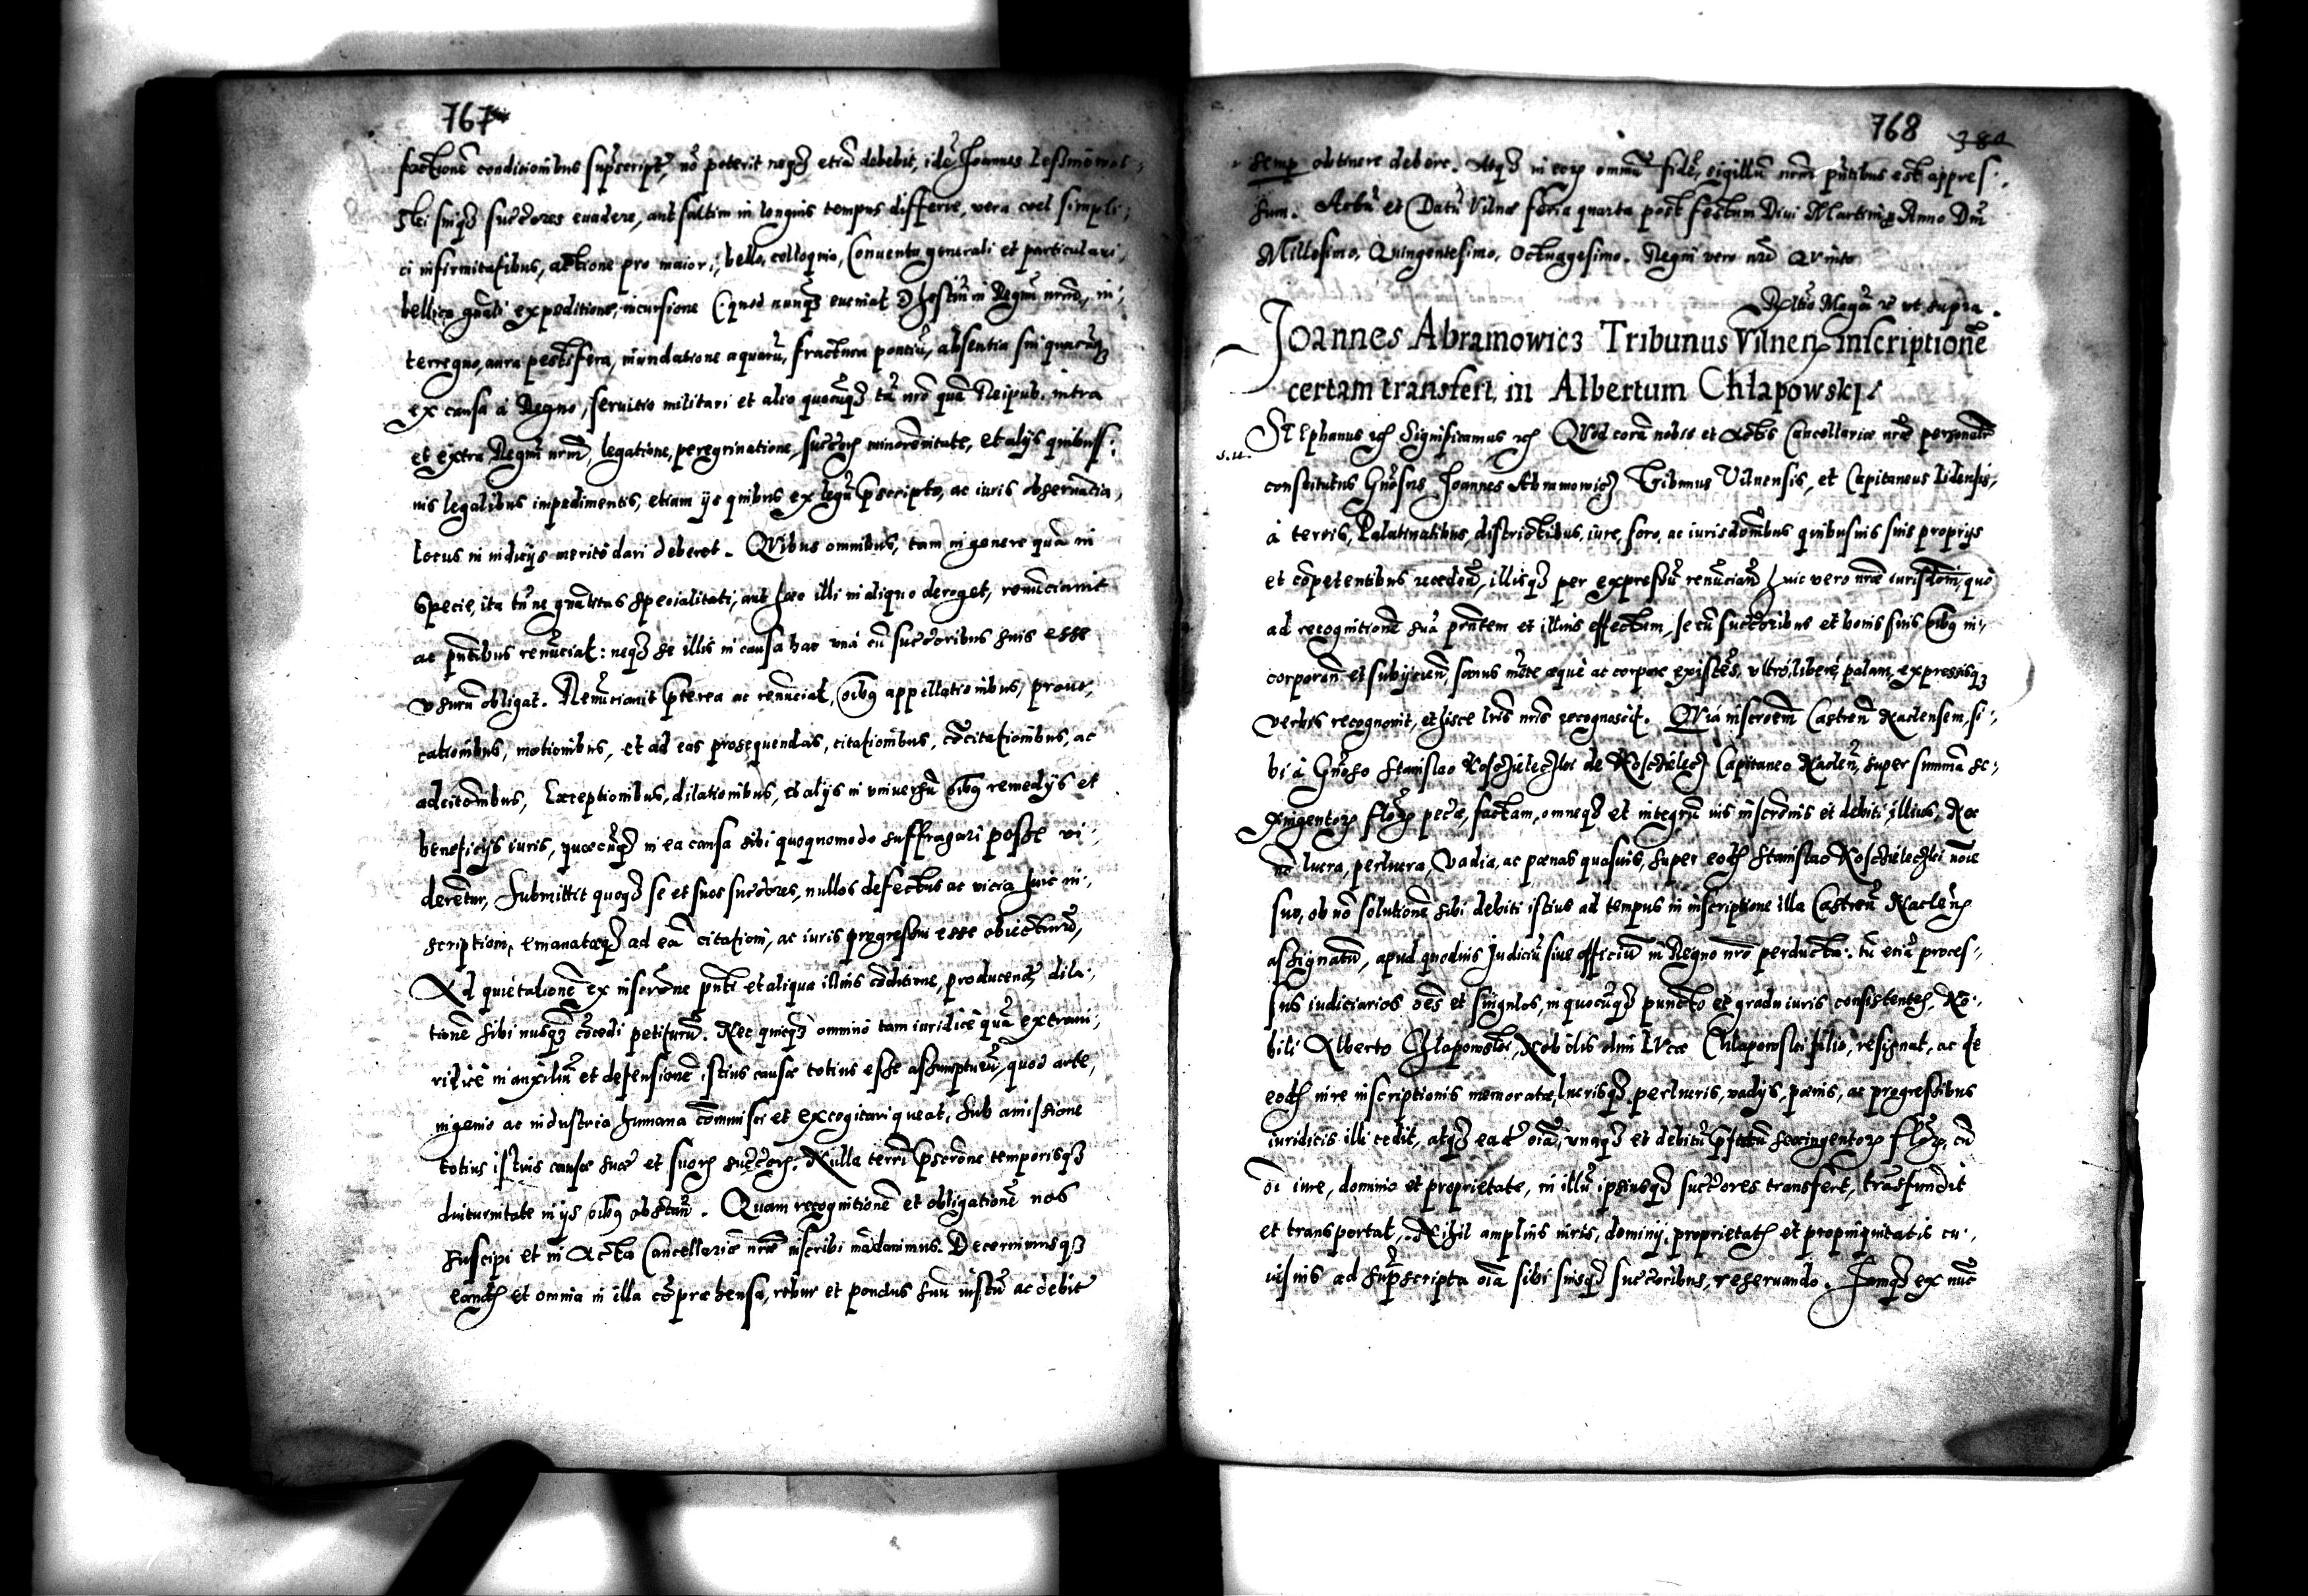 767
factionē conditionibus supscript, nō poterit neqȝ etiā debebit, idē Joannes Lesniowol,
ski suiqȝ succores euadere, aut saltim in longius tempus differre, vera vel simpli,
ci infirmitatibus, actione pro maiori, bello, colloquio, Conuentu generali et particulari,
bellica gñali expeditione, incursione (quod nunqȝ eueniat) hostiū in Regnū nrm̄, in,
terregno, aura pestifera, inundatione aquarū, fractura pontiū, absentia sui quacūqȝ
ex causa à Regno, seruitio militari et alio quocūqȝ tā nrō quā Reipub. intra
et extra Regnū nrm̄, legatione, peregrinatione, succor minorennitate, et alijs quibus:
uis legalibus impedimentis, etiam ijs quibus ex legū pscripto, ac iuris obseruatia,
locus in iudicijs meritò dari deberet. Quibus omnibus, tam in genere quā in
specie, ita tn̄ ne gñalitas specialitati, aut haec illi in aliquo deroget, renūciauit
ac pn̄tibus renūciat: neqȝ se illis in causa hac unà cū succoribus suis esse
usurū obligat. Renūciauit pterea ac renūciat, oibȝ appellationibus, prouo,
cationibus, motionibus, et ad eas prosequendas, citationibus, cōcitationibus, ac
adcitōnibus, Exceptionibus, dilationibus, et alijs in uniuersū oibȝ remedijs et
beneficijs iuris, quaecūqȝ in ea causa sibi quoquomodo suffragari posse vi,
derētur, Submittit quoqȝ se et suos succores, nullos defectus ac vicia huic in,
scriptioni, emanataeqȝ ad eā citationi, ac iuris progressui esse obiecturū,
Ad quietationē ex inscrōne pn̄ti et aliqua illius cōditione, producendā, dila,
tionē sibi nusqȝ cōcedi petiturū. Nec quicqȝ omnino tam iuridicè quā extraiu,
ridicè in auxiliū et defensionē istius causae totius esse assumpturū, quod arte,
ingenio ac industria humana cōminisci et excogitari queat, sub amissione
totius istius causae suae et suor succor. Nulla terrī pscrōne temporisqȝ
diuturnitate in ijs oibȝ obstan̄. Quam recognitionē et obligationē nos
suscipi et in Acta Cancellariae nrae inscribi mādauimus. Decernimusqȝ
eand et omnia in illa cōpraehensa, robur et pondus suū iustū ac debitū
768
384
semp obtinere debere. Atqȝ in eor omniū fidē, sigillū nrm̄ pn̄tibus est appres,
sum. Actū et Datū Vilnae feria quarta post festum Diui Martini Anno Dn̄i
Millesimo, Quingentesimo, Octuagesimo. Regni vero nrī Quinto
Reltio Magci etc ut supra.
Joannes Abramowicz Tribunus Vilnen̄ inscriptionē
certam transfert, in Albertum Chłapowski.
s.u.
Stephanus etc Significamus etc Quod corā nobis et Actis Cancellariae nrae personalr
constitutus Gn̄osus Joannes Abramowicz Tribunus Vilnensis, et Capitaneus Lidensis,
à terris, Palatinatibus, districtibus, iure, foro, ac iurisdōnibus quibusuis suis proprijs
et cōpetentibus recedeñ, illisqȝ per expressū renūcian̄, huic vero nrae iurisdōni, quò
ad recognitionē suā pn̄tem et illius effectum, se cū succoribus et bonis suis oibȝ in,
corporan̄ et subijcien̄, sanus mēte aequè ac corpore existēs, ultrò, libere, palam, expressisqȝ
verbis recognouit, et hisce lrīs nrīs recognoscit. Quia inscrōnem Castren̄ Naclensem, si,
bi à Gn̄oso Stanislao Koscieleczki de Koscielecz Capitaneo Naclen̄, super summā se,
xingentor flor pecae, factam, omneqȝ et integrū ius inscrōnis et debiti illius, Nec
nō lucra, perlucra, Vadia, ac paenas quasuis, super eod Stanislao Koscieleczki noīe
suo, ob nō solutionē sibi debiti istius ad tempus in inscriptione illa Castren̄ Naclen̄
assignatū, apud quoduis Judiciū siue officiū in Regno nrō perducta: tū etiā proces,
sus iudiciarios oēs et singulos, in quocūqȝ puncto et gradu iuris consistentes, No,
bili Alberto Chłapowski, Nobilis olim Lucae Chłapowski filio, resignat, ac de
eod iure inscriptionis memoratae, lucrisqȝ, perlucris, vadijs, paenis, ac progressibus
iuridicis illi cedit, atqȝ eadē oīa, unaqȝ et debitū pfatū sexingentor flor, cū
oī iure, dominio et proprietate, in illū ipsiusqȝ succores transfert, trāsfundit
et transportat, Nihil amplius iuris, dominij, proprietat et propinquitatis cu,
iusuis ad supscripta oīa sibi suisqȝ succoribus, reseruando. Jamqȝ ex nūc